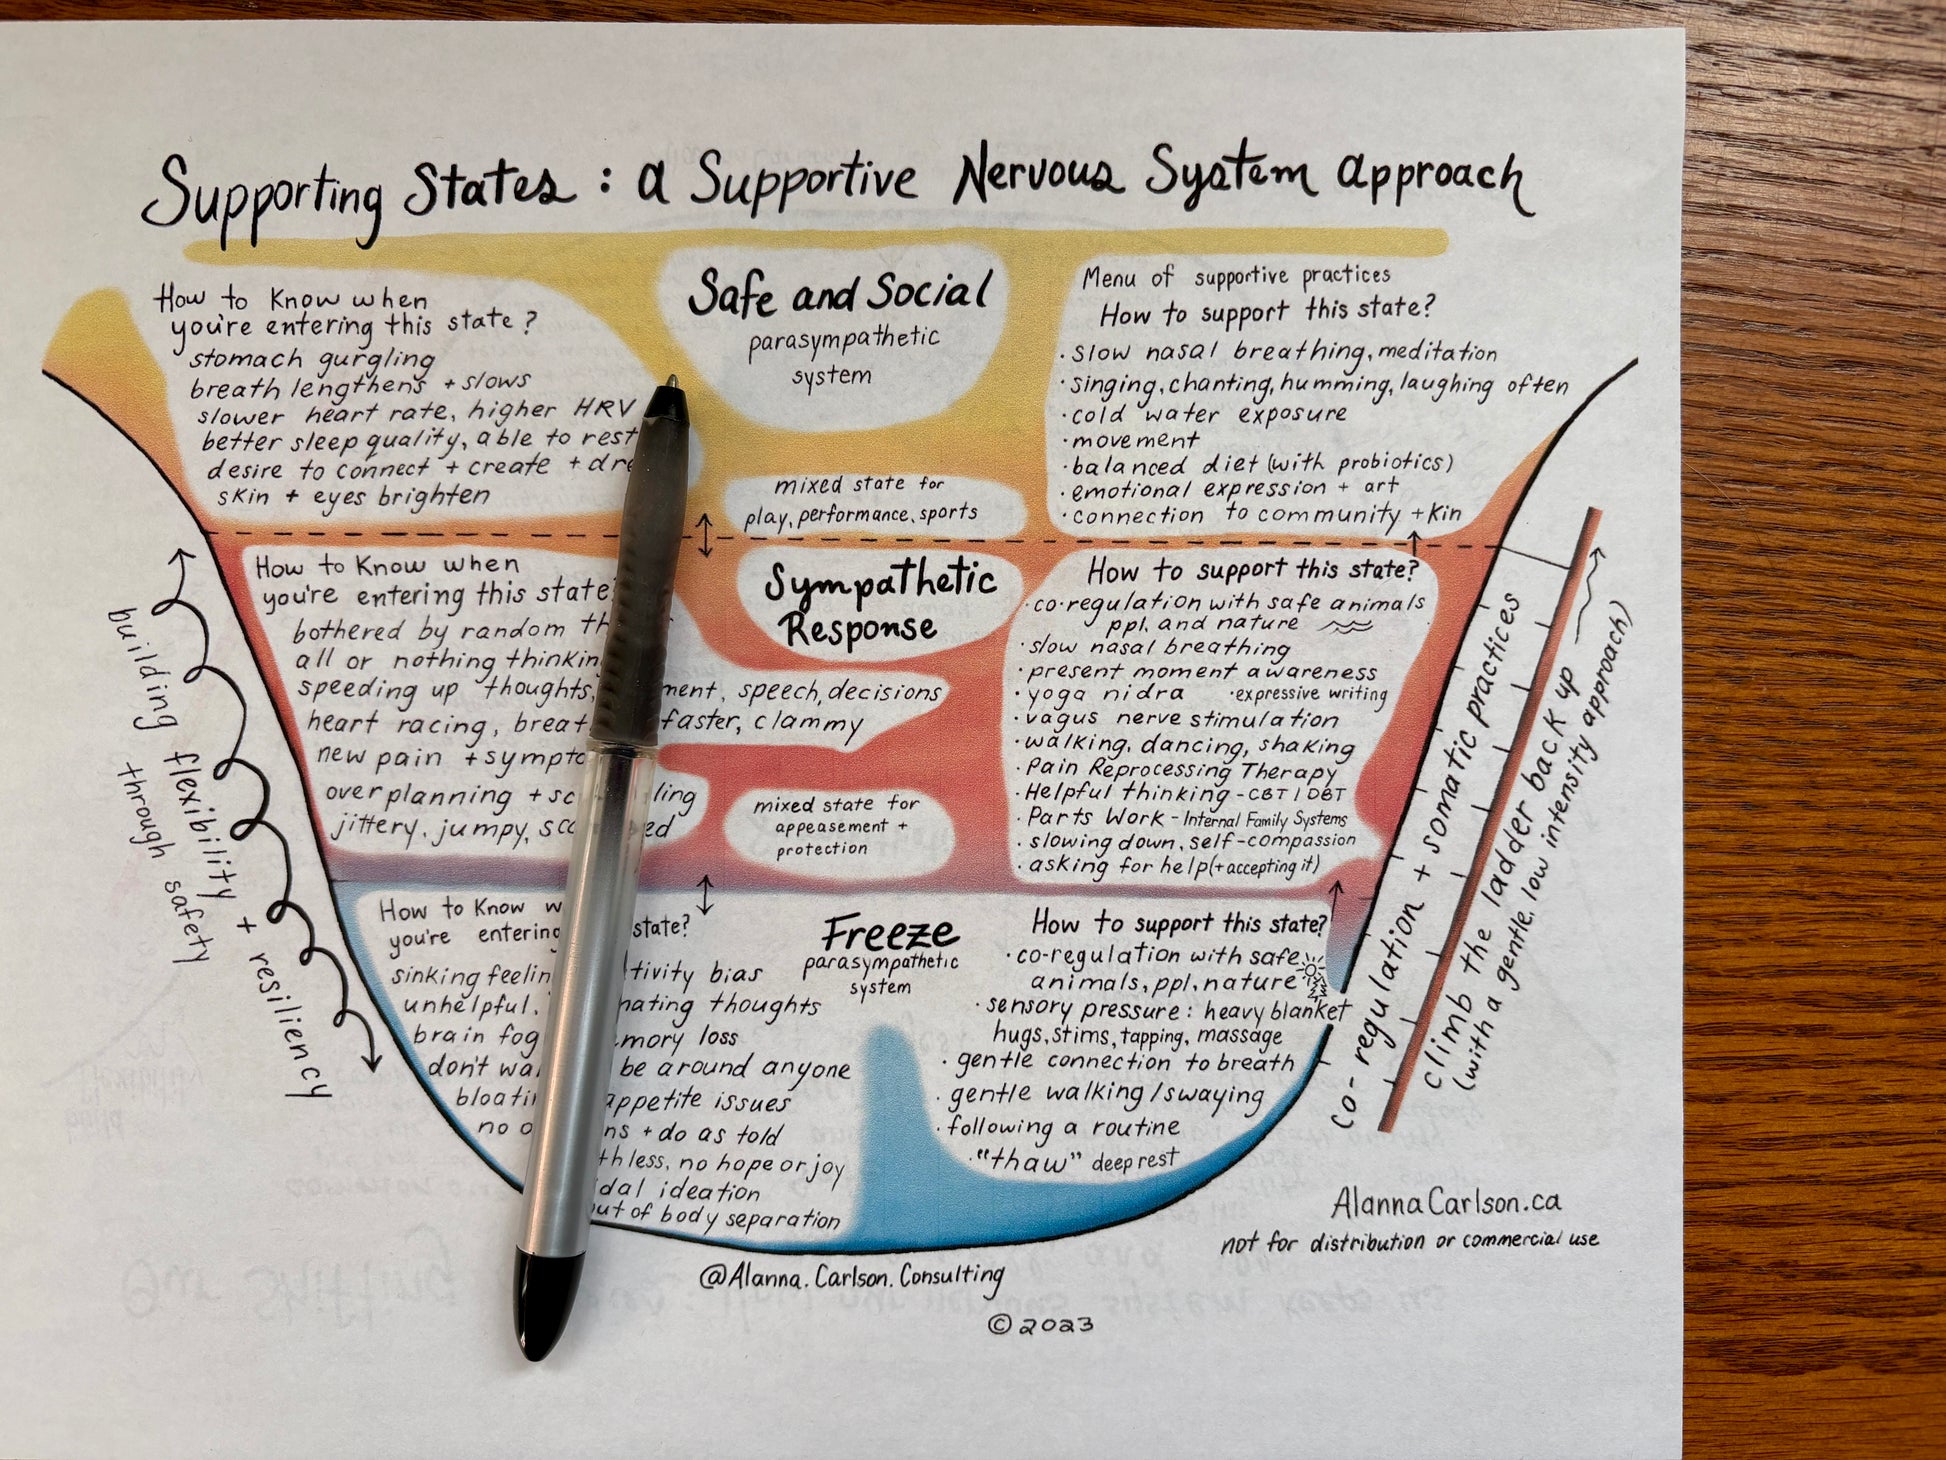 Supporting States : a Supportive Nervous System approach
Safe and Social
parasympathetic
system
How to Know when
you're entering this state?
stomach gurgling
breath lengthens + slows
slower heart rate, higher HRV
better sleep quality, able to rest
desire to connect + create +
skin + eyes brighten
Menu of supportive practices
How to support this state?
· slow nasal breathing, meditation
· singing, chanting, humming, laughing often
· cold water exposure
· movement
· balanced diet (with probiotics)
· emotional expression + art
· connection to community + Kin
mixed state for
play, performance, sports
Sympathetic
Response
How to Know when
you're entering this state?
bothered by random
all or nothing
speeding up thoughts, speech, decisions
heart racing, faster, clammy
new pain +
overplanning +
jittery, jumpy,
How to support this state?
· co-regulation with safe animals
ppl. and nature
· slow nasal breathing
· present moment awareness
· yoga nidra · expressive writing
· vagus nerve stimulation
· walking, dancing, shaking
· Pain Reprocessing Therapy
· Helpful thinking - CBT / DBT
· Parts Work - Internal Family Systems
· slowing down, self-compassion
· asking for help (+ accepting it)
mixed state for
appeasement +
protection
Freeze
parasympathetic
system
How to Know
you're state?
sinking bias
unhelpful, thoughts
brain fog loss
don't be around anyone
appetite issues
no + do as told
no hope or joy
ideation
out of body separation
How to support this state?
· co-regulation with safe
animals, ppl, nature
· sensory pressure : heavy blanket
hugs, stims, tapping, massage
· gentle connection to breath
· gentle walking / swaying
· following a routine
· "thaw" deep rest
building flexibility + resiliency
through safety
co-regulation + somatic practices
climb the ladder back up
(with a gentle, low intensity approach)
AlannaCarlson.ca
not for distribution or commercial use
@Alanna.Carlson.Consulting
© 2023